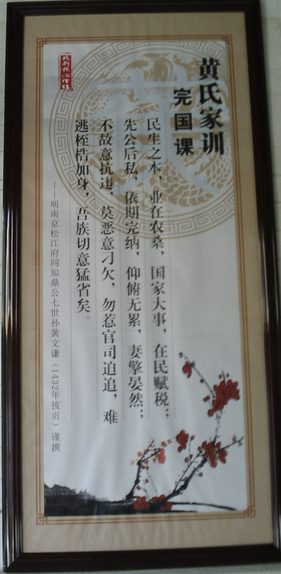 黄氏家训
完国课
民生之本，业在农桑，国家大事，在民赋税；
先公后私，依期完纳，仰俯无累，妻孥晏然；
不故意抗违，莫恶意刁欠，勿惹官司迫追，难
逃桎梏加身，吾族切意猛省矣。
——明南京松江府同知鼎公七世孙黄文谦（1432年拔贡）谨撰